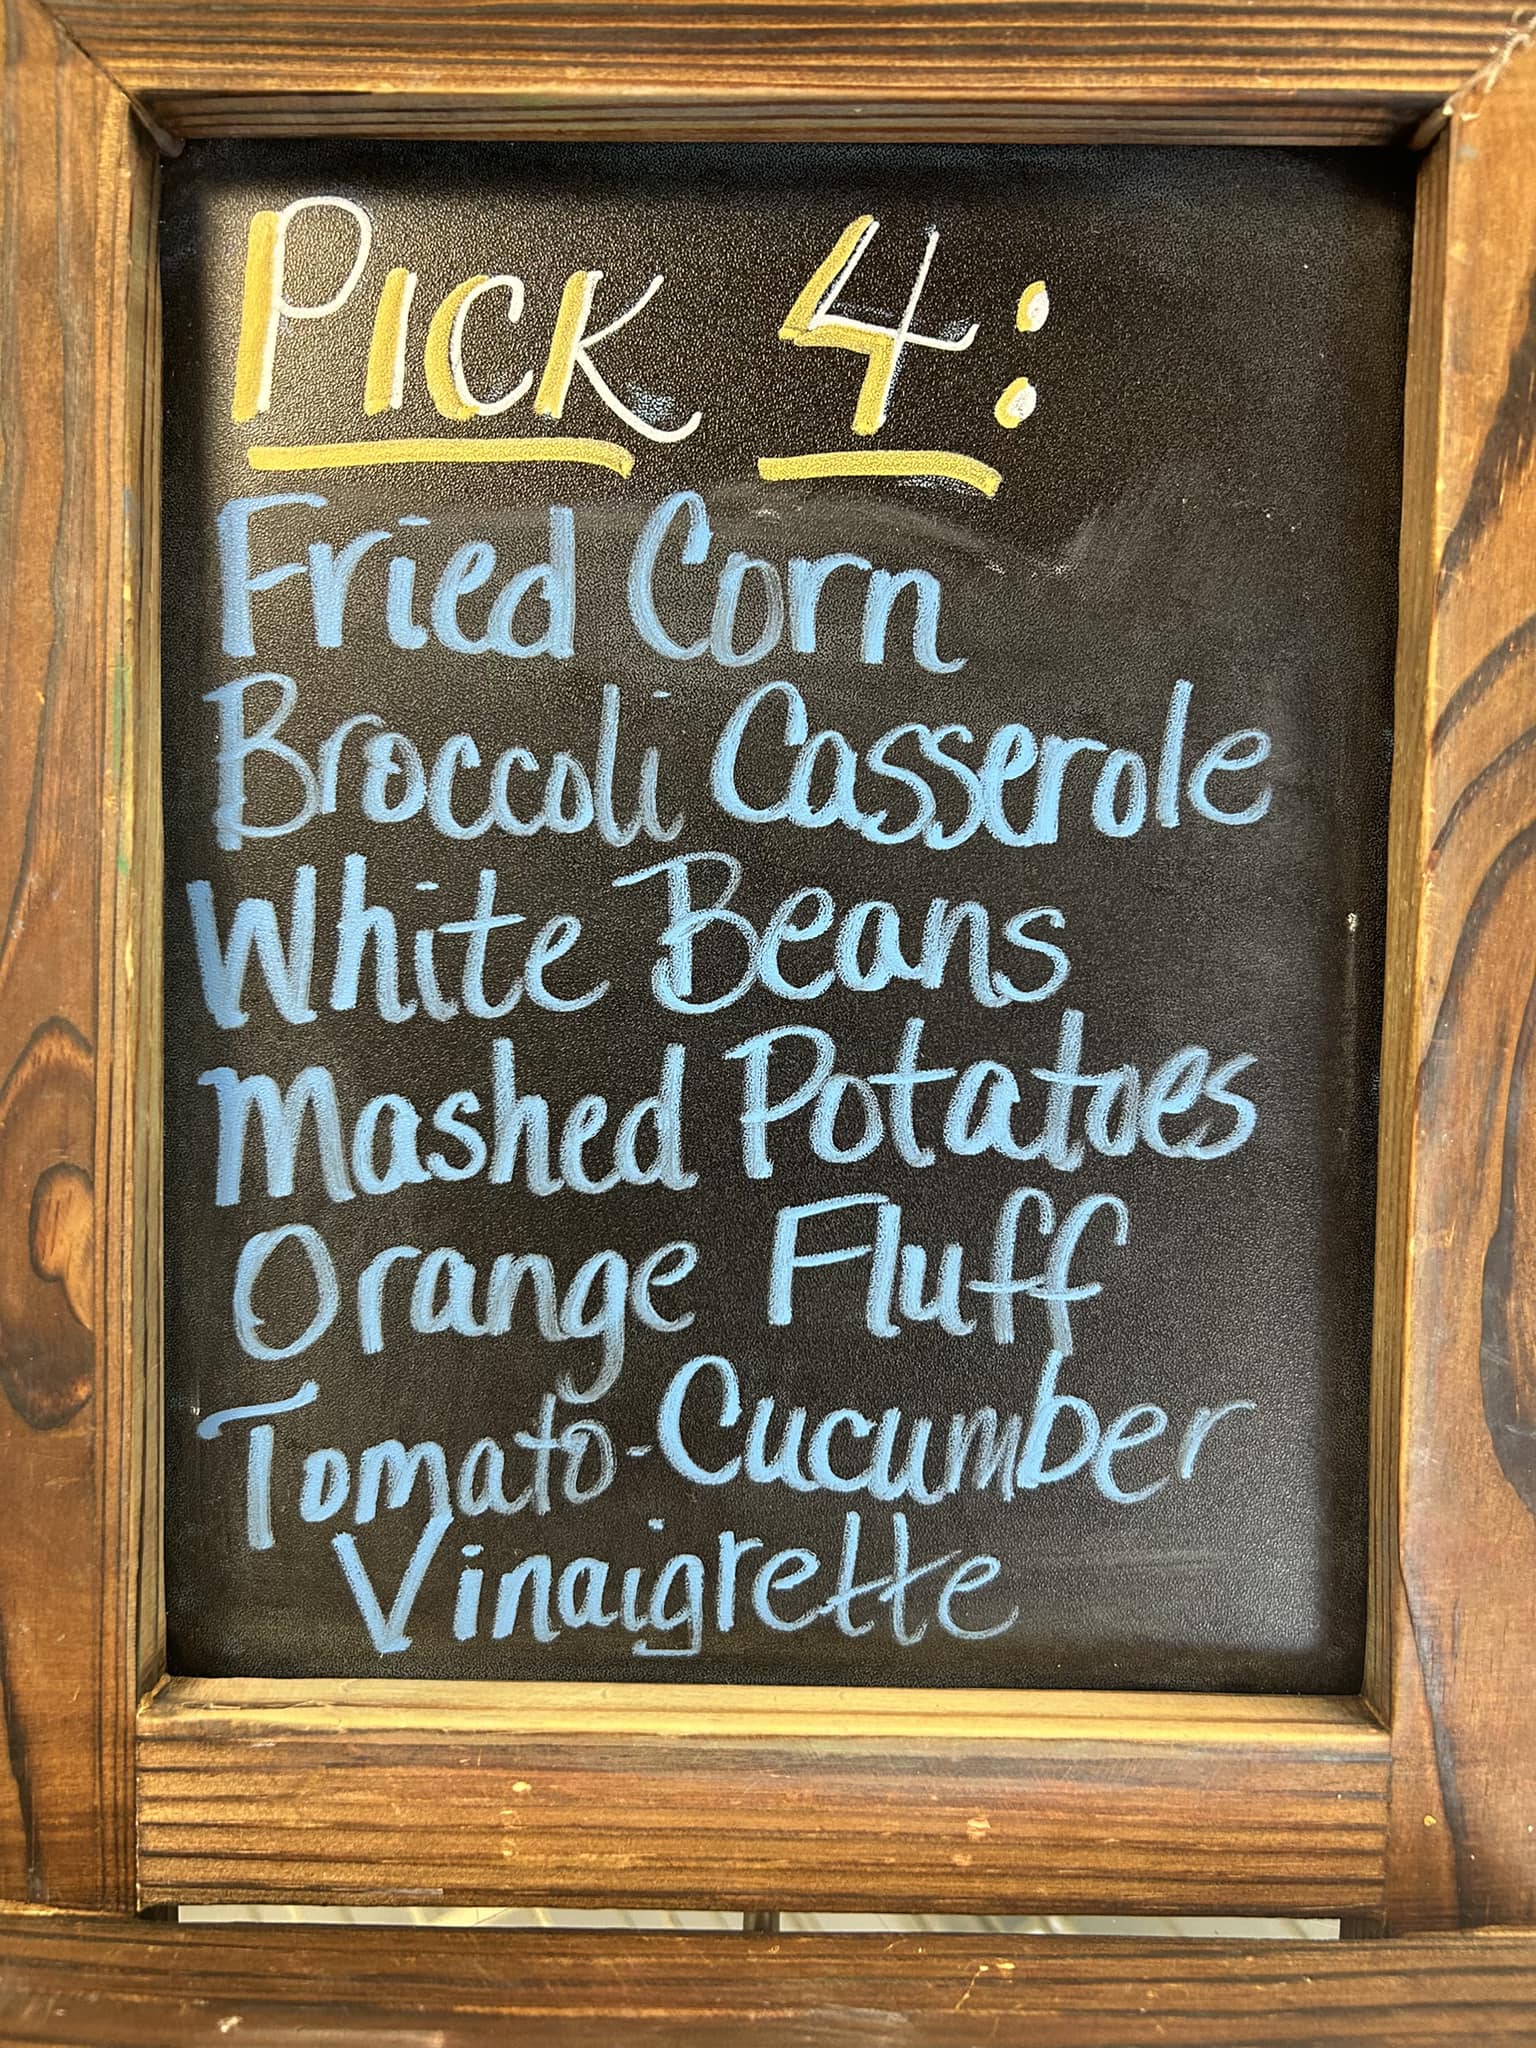 PICK 4:
Fried Corn
Broccoli Casserole
White Beans
Mashed Potatoes
Orange Fluff
Tomato-Cucumber
Vinaigrette